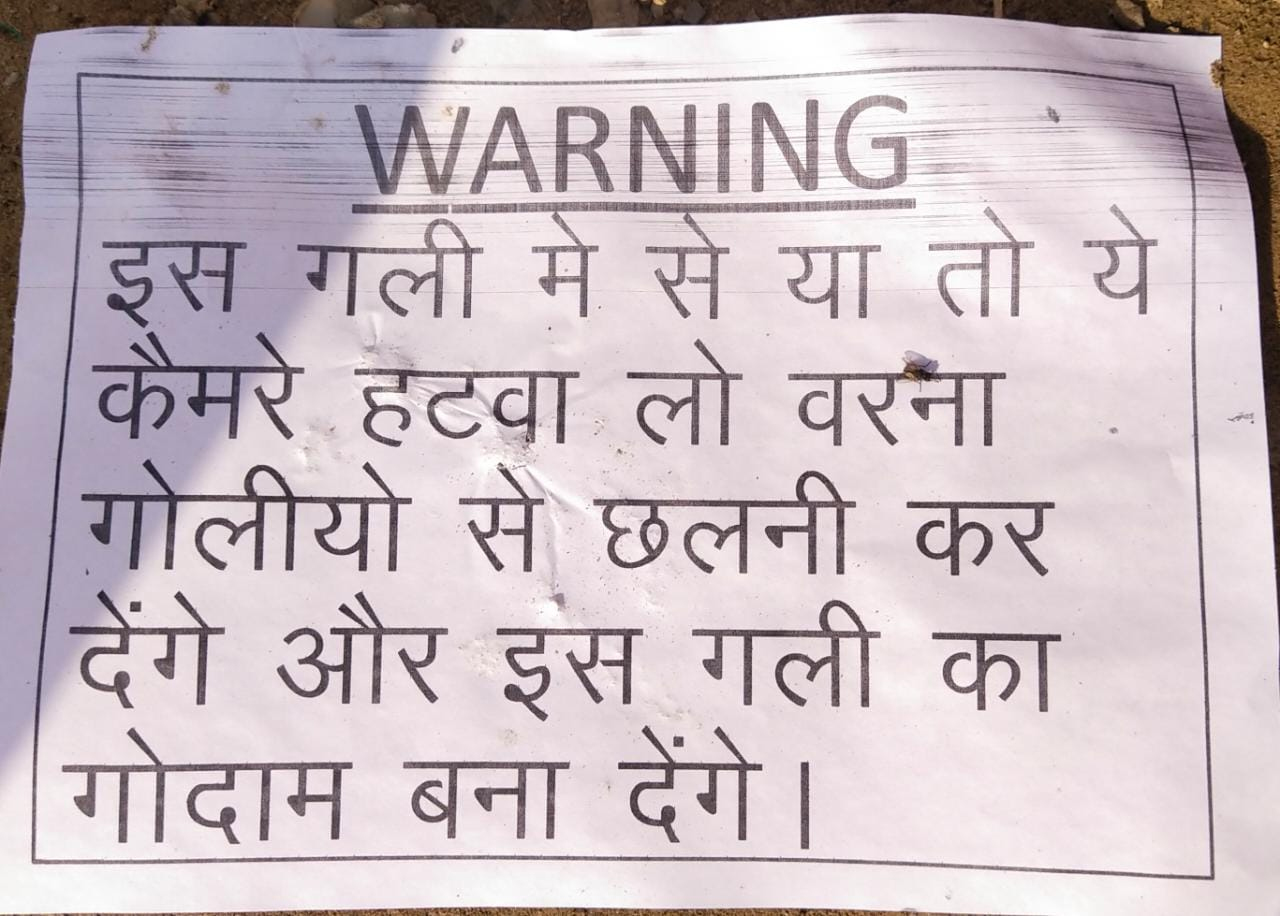 WARNING
इस गली मे से या तो ये
कैमरे हटवा लो वरना
गोलीयो से छलनी कर
देंगे और इस गली का
गोदाम बना देंगे।